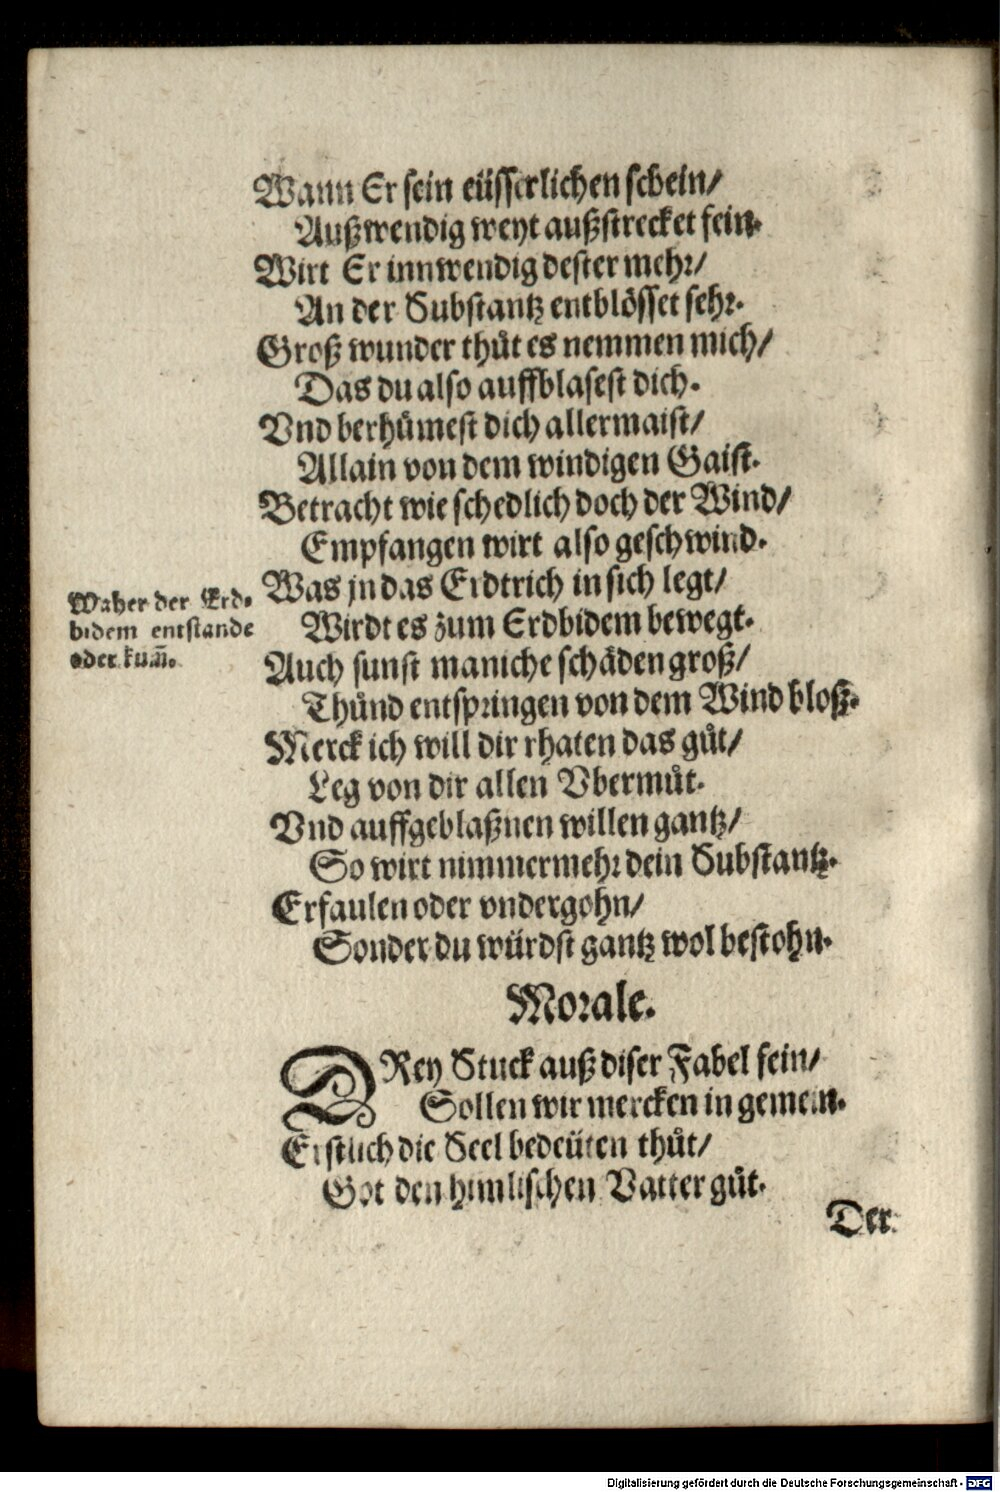 Wann Er sein eüsserlichen schein/
Außwendig weyt außstrecket fein.
Wirt Er innwendig dester mehr/
An der Substantz entblösset sehr.
Groß wunder thůt es nemmen mich/
Das du also auffblasest dich.
Vnd berhůmest dich allermaist/
Allain von dem windigen Gaist.
Betracht wie schedlich doch der Wind/
Empfangen wirt also geschwind.
Waher der Erd-
bidem entstande
oder kum̃.
Was jn das Erdtrich in sich legt/
Wirdt es zum Erdbidem bewegt.
Auch sunst maniche schäden groß/
Thůnd entspringen von dem Wind bloß.
Merck ich will dir rhaten das gůt/
Leg von dir allen Vbermůt.
Vnd auffgeblaßnen willen gantz/
So wirt nimmermehr dein Substantz.
Erfaulen oder vndergohn/
Sonder du würdst gantz wol bestohn.
Morale.
DRey Stuck auß diser Fabel fein/
Sollen wir mercken in gemein.
Erstlich die Seel bedeüten thůt/
Got den himlischen Vatter gůt.
Der
Digitalisierung gefördert durch die Deutsche Forschungsgemeinschaft - DFG